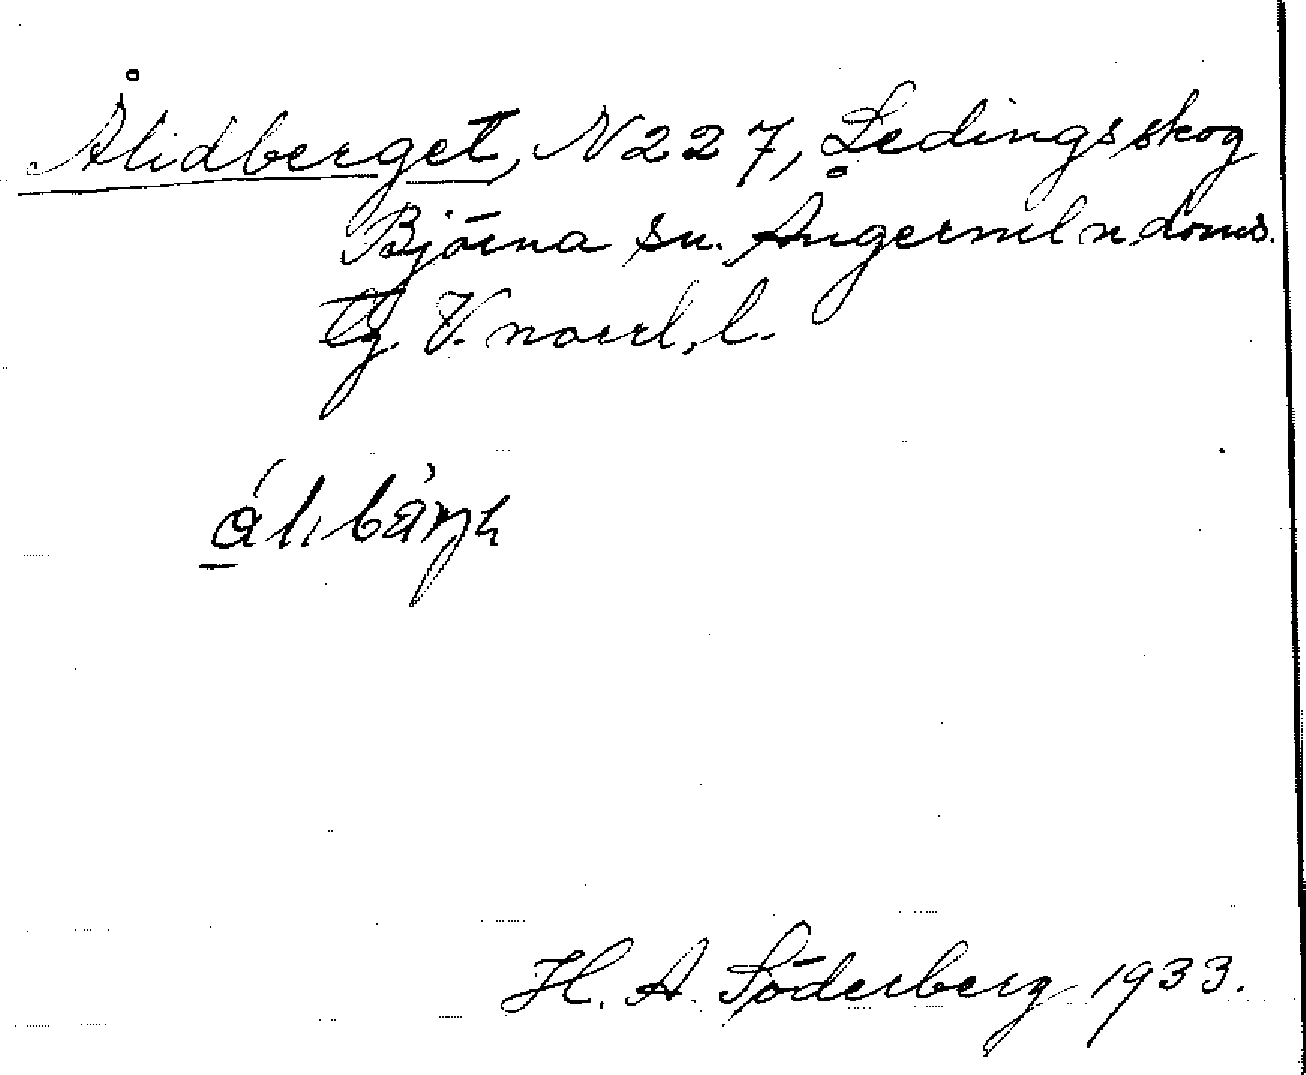 Ålidberget, N 227, Ledingsskog
Björna sn. Ångerml n. doms.
tg V. norrl. l.
H. A. Söderberg 1933.